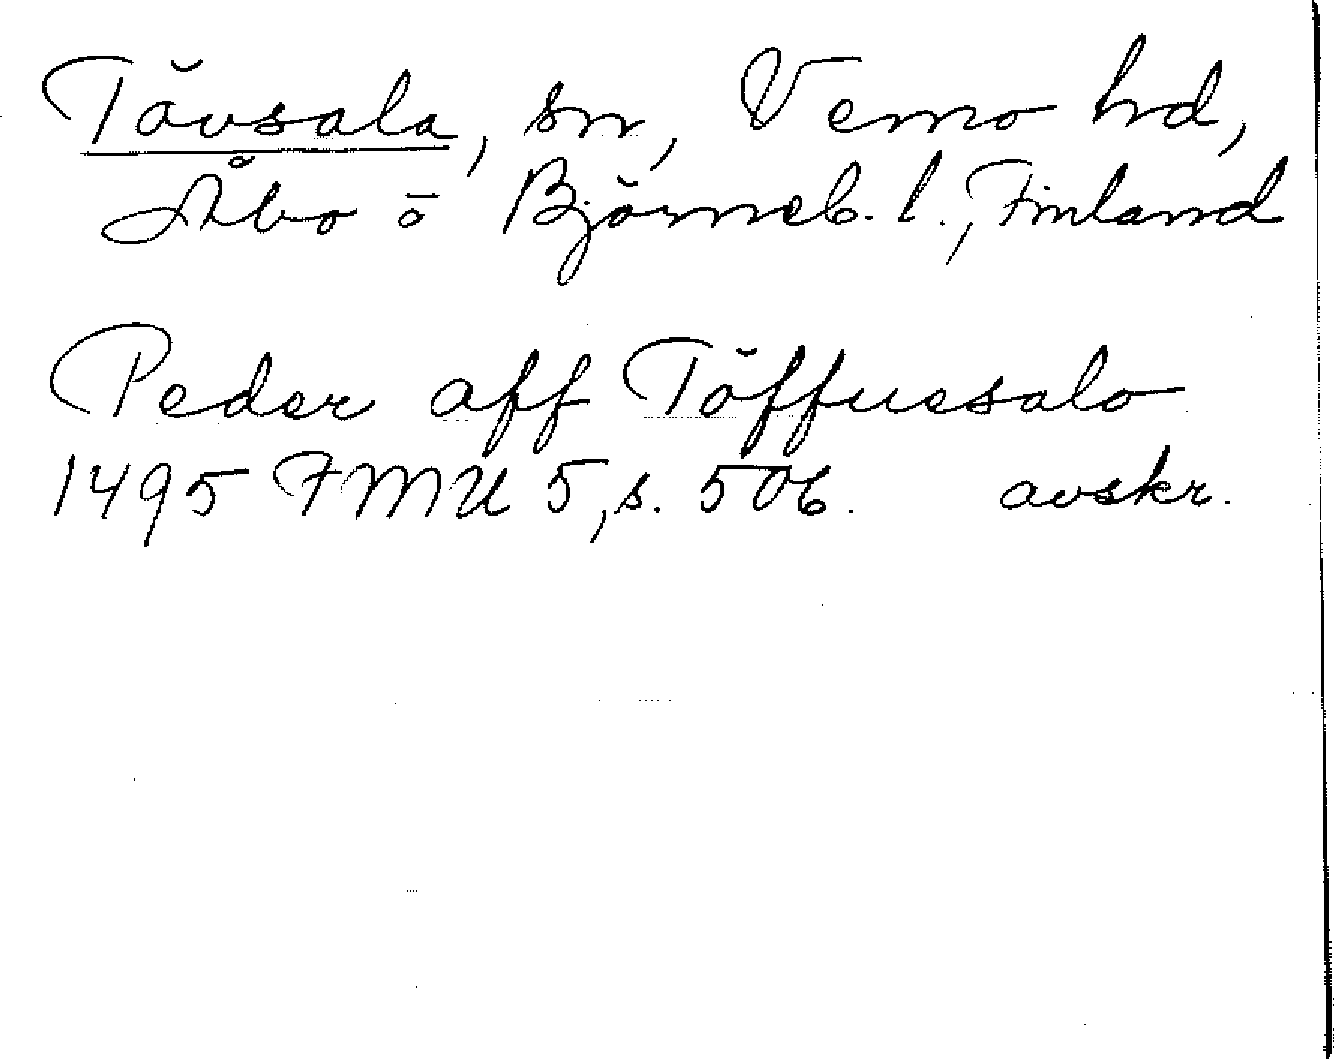 Tövsala, sn, Vemo hd,
Åbo o Björneb. l., Finland
Peder aff Töffuesalo
1495 FMU 5, s. 506. avskr.